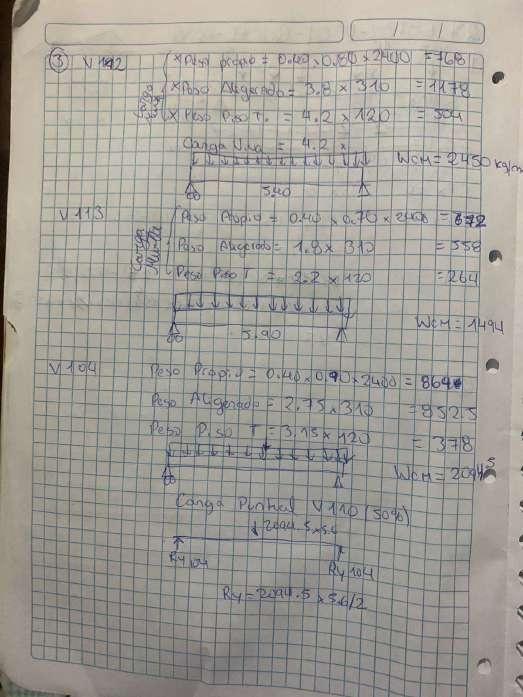 / /
③ V112 x Peso propio = 0.40 x 0.80 x 2400 = 768
Carga
x Peso Aligerado = 3.8 x 310 = 1178
x Peso Piso T. = 4.2 x 120 = 504
Carga Viva = 4.2 x
WCM = 2450 kg/m
5.40
V113 Peso Propio = 0.40 x 0.70 x 2400 = 672
Carga Muerta
Peso Aligerado = 1.8 x 310 = 558
Peso Piso T = 2.2 x 120 = 264
WCM = 1494
5.90
V104 Peso Propio = 0.40 x 0.90 x 2400 = 864
Peso Aligerado = 2.75 x 310 = 852.5
Peso Piso T = 3.15 x 120 = 378
WCM = 2094.5
Carga Puntual V110 (50%)
2094.5 x 5.6
Ry 104
Ry 104
Ry = 2094.5 x 5.6/2